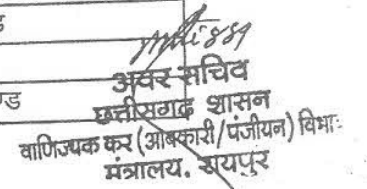 ड
अवर सचिव
छत्तीसगढ़ शासन
वाणिज्यक कर (आबकारी/पंजीयन) विभाः
मंत्रालय. रायपुर